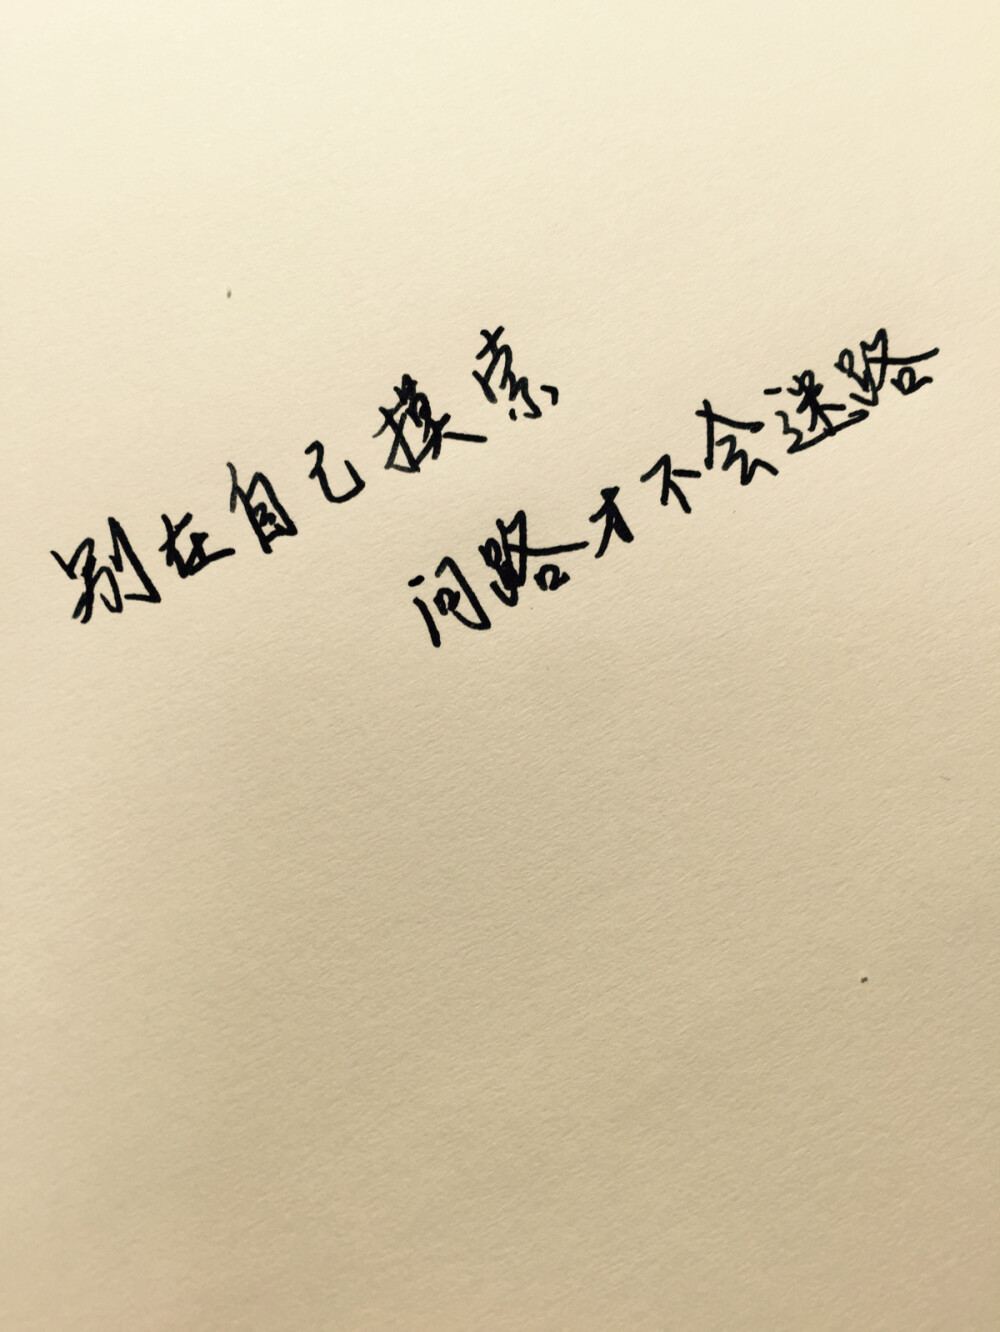 别在自己摸索,
问路才不会迷路